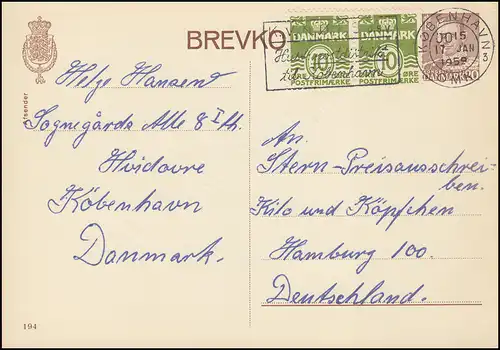 BREVKO
DANMARK DANMARK
10 10
ØRE ØRE
POSTFRIMÆRKE POSTFRIMÆRKE
KØBENHAVN
15
17 JAN
1959
3
Afsender
Helge Hansen
Sognegårds Alle 8 I th.
Hvidovre
København
Danmark.
An.
Stern-Preisausschrei-
ben.
Kilo und Köpfchen
Hamburg 100.
Deutschland.
194